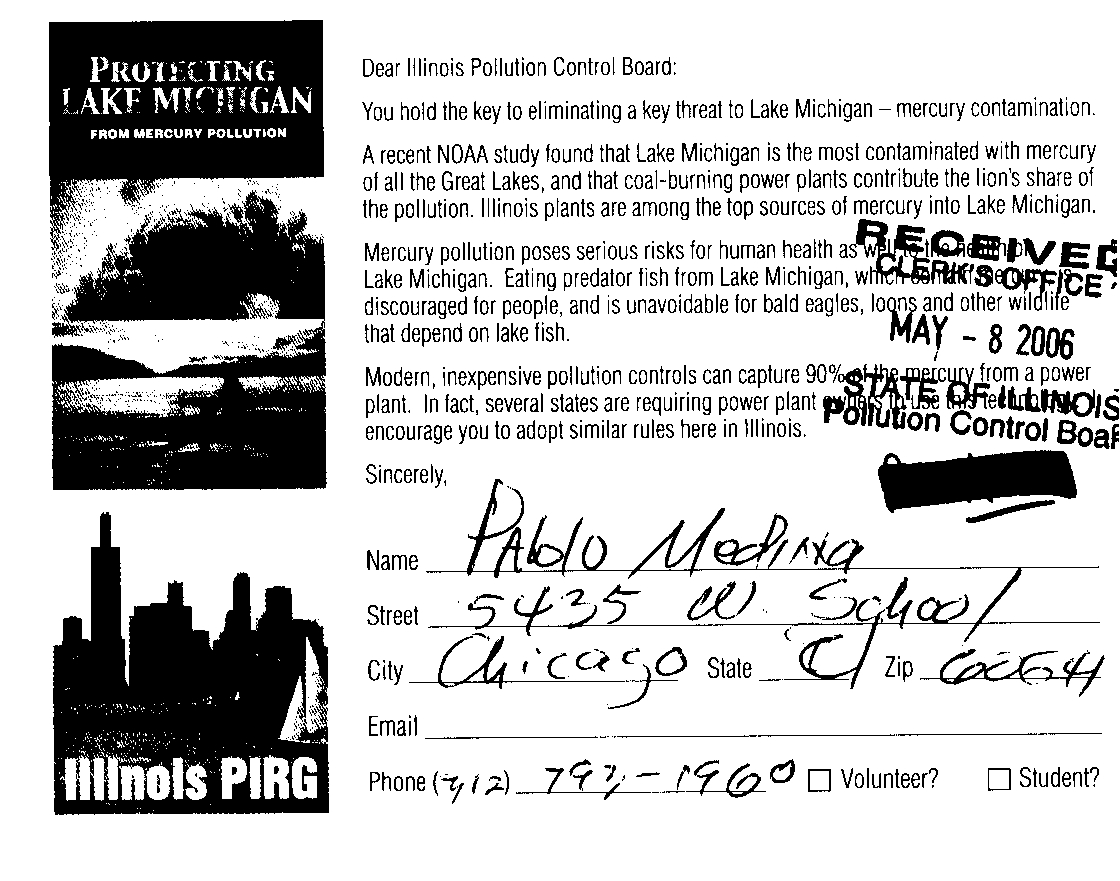 PROTECTING
LAKE MICHIGAN
FROM MERCURY POLLUTION
Illinois PIRG
Dear Illinois Pollution Control Board:
You hold the key to eliminating a key threat to Lake Michigan – mercury contamination.
A recent NOAA study found that Lake Michigan is the most contaminated with mercury
of all the Great Lakes, and that coal-burning power plants contribute the lion's share of
the pollution. Illinois plants are among the top sources of mercury into Lake Michigan.
Mercury pollution poses serious risks for human health as well to the health
Lake Michigan. Eating predator fish from Lake Michigan, which
discouraged for people, and is unavoidable for bald eagles, loons and other wildlife
that depend on lake fish.
Modern, inexpensive pollution controls can capture 90% of the mercury from a power
plant. In fact, several states are requiring power plant owners to use this
encourage you to adopt similar rules here in Illinois.
RECEIVED
CLERK'S OFFICE
MAY - 8 2006
STATE OF ILLINOIS
Pollution Control Boar
Sincerely,
Name Pablo Medina
Street 5435 W. School
City Chicago State Zip
Email
Phone (312) 793-1960 Volunteer? Student?